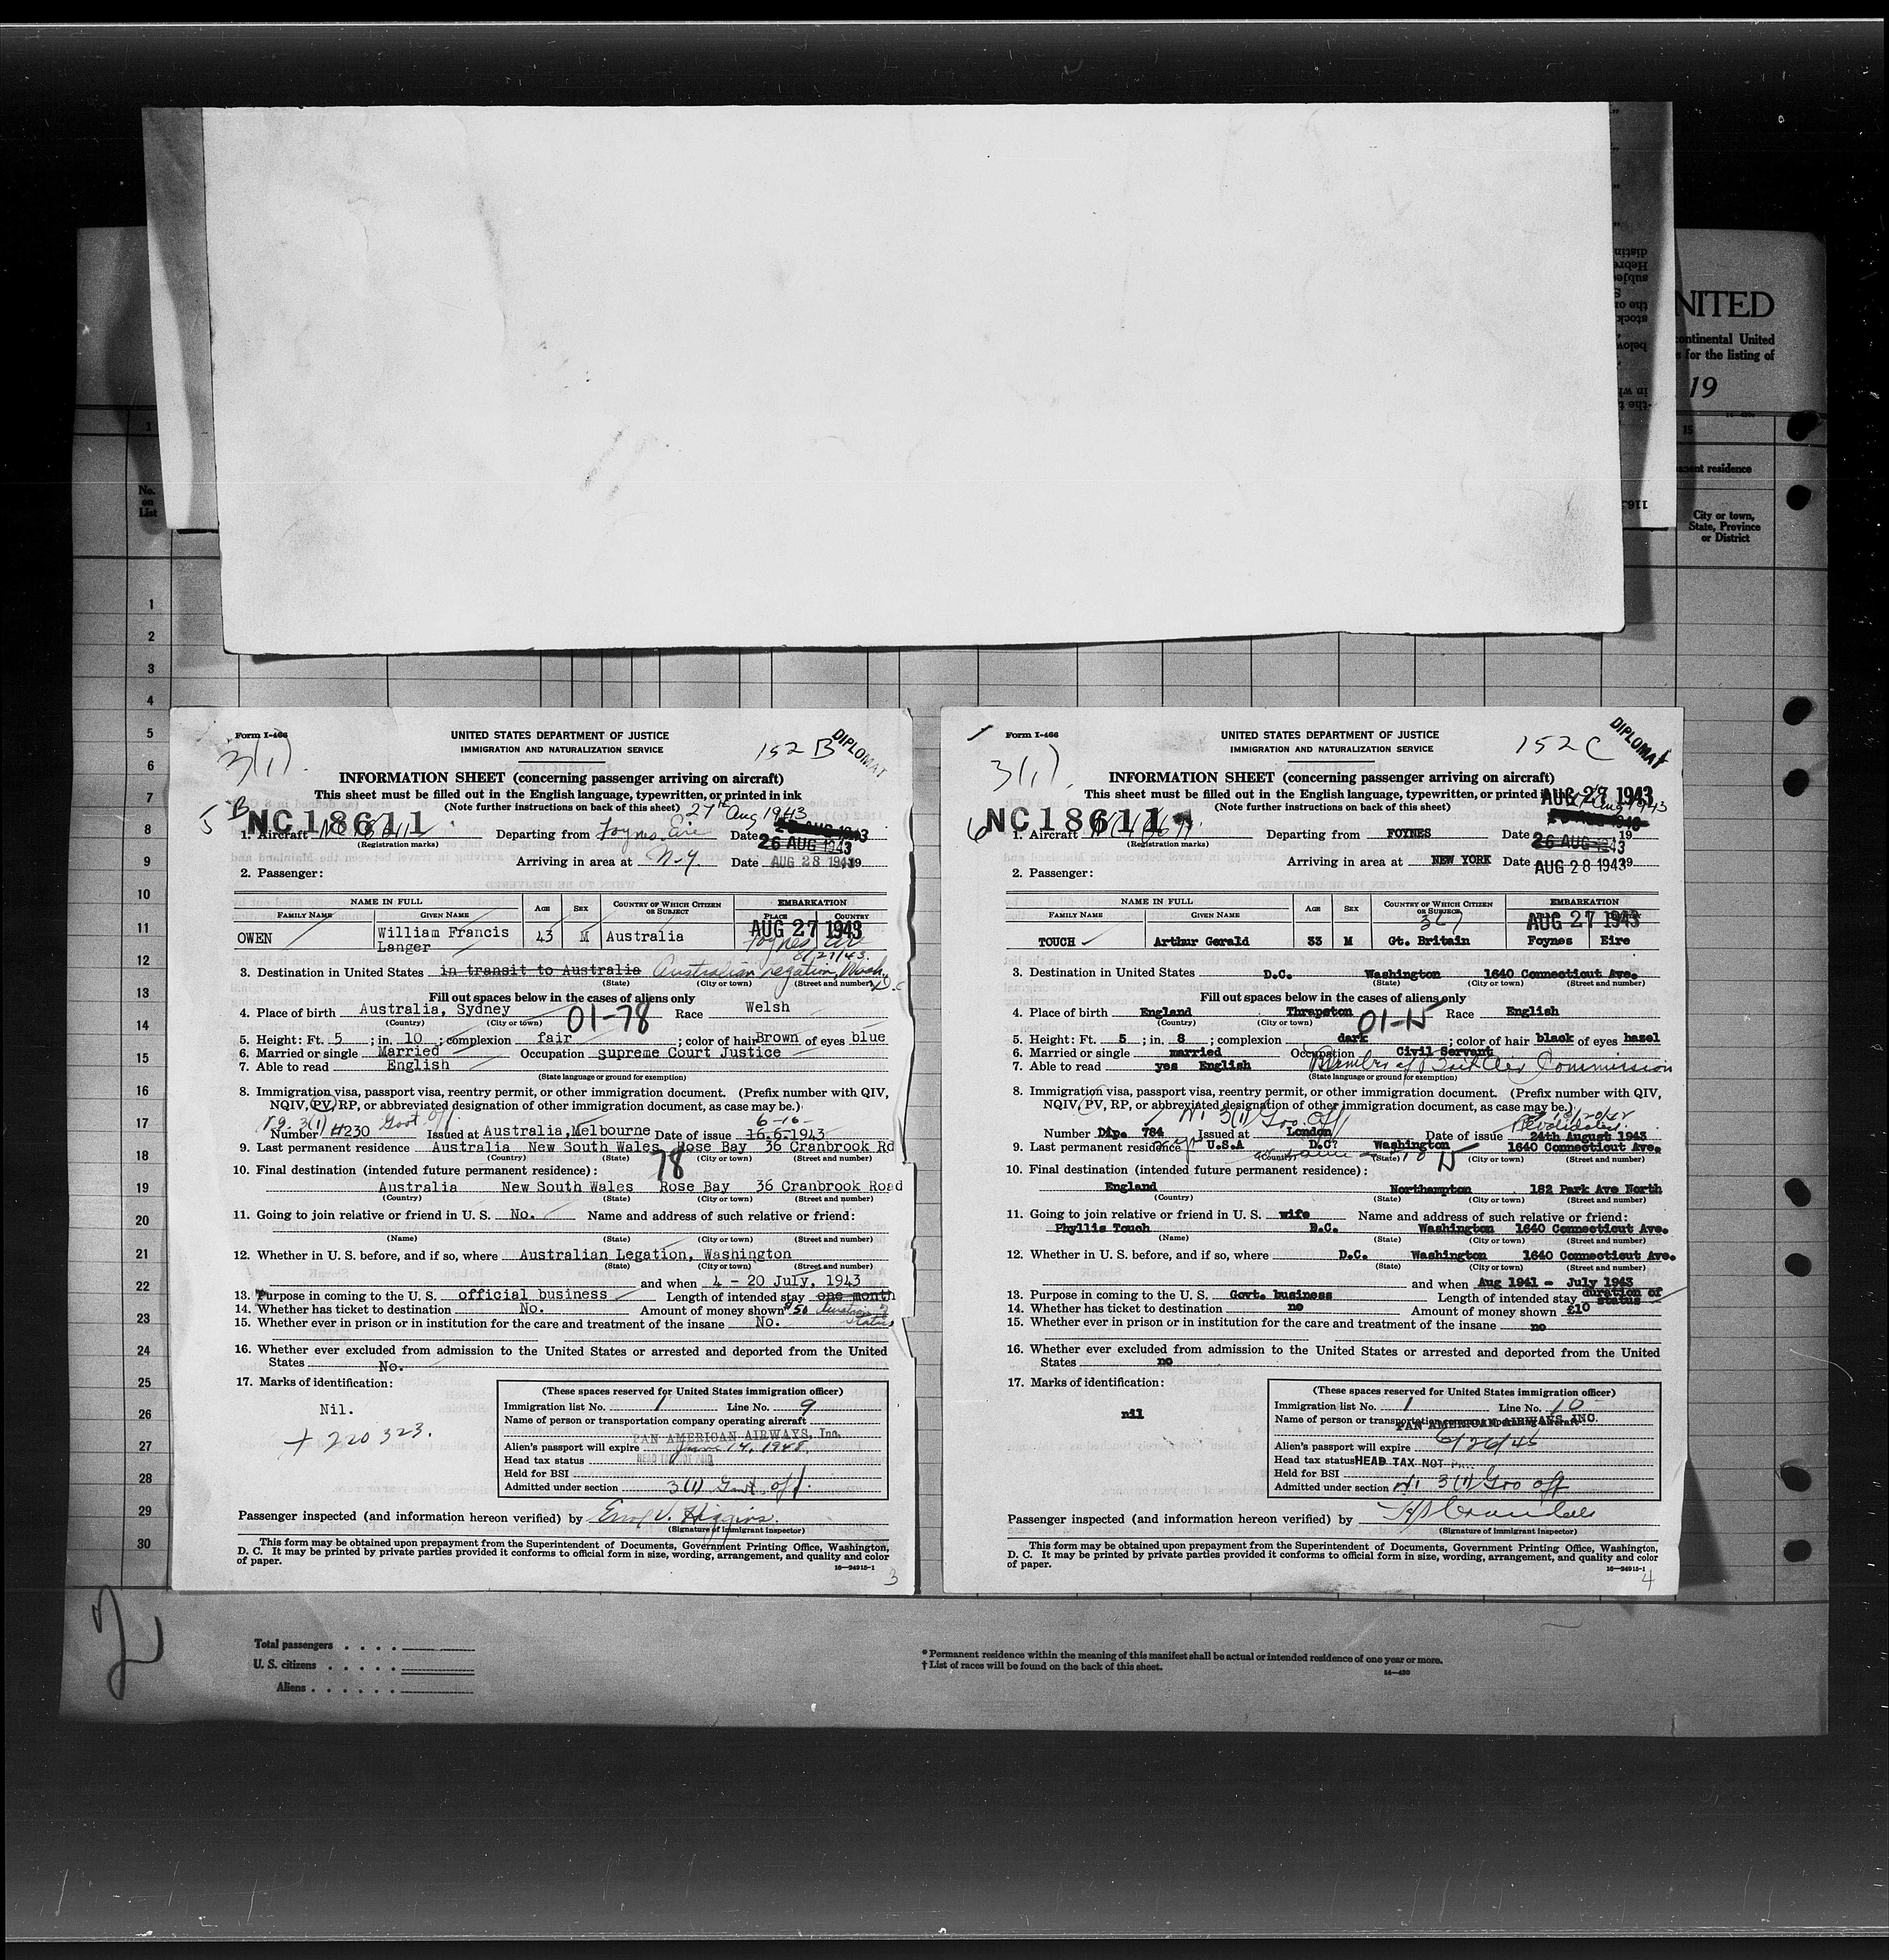 NITED
continental United
for the listing of
19
15
residence
City or town,
State, Province
or District
1
No.
on
List
1
2
3
4
5
6
7
8
9
10
11
12
13
14
15
16
17
18
19
20
21
22
23
24
25
26
27
28
29
30
Form I-466
UNITED STATES DEPARTMENT OF JUSTICE
IMMIGRATION AND NATURALIZATION SERVICE
152 B
DIPLOMAT
3(1).
INFORMATION SHEET (concerning passenger arriving on aircraft)
This sheet must be filled out in the English language, typewritten, or printed in ink
(Note further instructions on back of this sheet)
27th Aug 1943
5 B
NC18611
1. Aircraft
(Registration marks)
Departing from Foynes Eire Date
26 AUG 1943
Arriving in area at N-Y Date AUG 28 1943 19
2. Passenger:
NAME IN FULL
FAMILY NAME GIVEN NAME AGE SEX COUNTRY OF WHICH CITIZEN OR SUBJECT EMBARKATION PLACE COUNTRY
AUG 27 1943
OWEN William Francis Langer 43 M Australia Foynes Eire
8/27/43.
3. Destination in United States in transit to Australia Australian Legation, Wash. D.C
(State) (City or town) (Street and number)
Fill out spaces below in the cases of aliens only
4. Place of birth Australia, Sydney 01-78 Race Welsh
(Country) (City or town)
5. Height: Ft. 5 ; in. 10 ; complexion fair ; color of hair Brown of eyes blue
6. Married or single Married Occupation Supreme Court Justice
7. Able to read English
(State language or ground for exemption)
8. Immigration visa, passport visa, reentry permit, or other immigration document. (Prefix number with QIV,
NQIV, PV, RP, or abbreviated designation of other immigration document, as case may be.)
3(1) Govt. Off. 6-16-
Number #230 Issued at Australia, Melbourne Date of issue 16.6.1943
9. Last permanent residence Australia New South Wales Rose Bay 36 Cranbrook Rd
(Country) (State) (City or town) (Street and number)
78
10. Final destination (intended future permanent residence):
Australia New South Wales Rose Bay 36 Cranbrook Road
(Country) (State) (City or town) (Street and number)
11. Going to join relative or friend in U. S. No. Name and address of such relative or friend:
(Name) (State) (City or town) (Street and number)
12. Whether in U. S. before, and if so, where Australian Legation, Washington
(State) (City or town) (Street and number)
and when 4 - 20 July, 1943
13. Purpose in coming to the U. S. official business Length of intended stay one month
14. Whether has ticket to destination No. Amount of money shown $50 duration of status
15. Whether ever in prison or in institution for the care and treatment of the insane No.
16. Whether ever excluded from admission to the United States or arrested and deported from the United
States No.
17. Marks of identification:
Nil.
+ 220323.
(These spaces reserved for United States immigration officer)
Immigration list No. 1 Line No. 9
Name of person or transportation company operating aircraft
PAN AMERICAN AIRWAYS, Inc.
Alien's passport will expire June 14, 1948
Head tax status
Held for BSI
Admitted under section 3(1) Govt. off.
Passenger inspected (and information hereon verified) by V. Higgins.
(Signature of immigrant inspector)
This form may be obtained upon prepayment from the Superintendent of Documents, Government Printing Office, Washington,
D. C. It may be printed by private parties provided it conforms to official form in size, wording, arrangement, and quality and color
of paper.
16—24915-1
3
Form I-466
UNITED STATES DEPARTMENT OF JUSTICE
IMMIGRATION AND NATURALIZATION SERVICE
152 C
DIPLOMAT
3(1)
INFORMATION SHEET (concerning passenger arriving on aircraft)
This sheet must be filled out in the English language, typewritten, or printed in ink
(Note further instructions on back of this sheet)
AUG 27 1943
Aug 1943
6
NC18611
1. Aircraft
(Registration marks)
Departing from FOYNES Date 19
26 AUG 1943
Arriving in area at NEW YORK Date AUG 28 1943 19
2. Passenger:
NAME IN FULL
FAMILY NAME GIVEN NAME AGE SEX COUNTRY OF WHICH CITIZEN OR SUBJECT EMBARKATION
AUG 27 1943
TOUCH Arthur Gerald 33 M Gt. Britain Foynes Eire
3. Destination in United States D.C. Washington 1640 Connecticut Ave.
(State) (City or town) (Street and number)
Fill out spaces below in the cases of aliens only
4. Place of birth England Thrapston 01-15 Race English
(Country) (City or town)
5. Height: Ft. 5 ; in. 8 ; complexion dark ; color of hair black of eyes hazel
6. Married or single married Occupation Civil Servant
7. Able to read yes English Member of British Commission
(State language or ground for exemption)
8. Immigration visa, passport visa, reentry permit, or other immigration document. (Prefix number with QIV,
NQIV, PV, RP, or abbreviated designation of other immigration document, as case may be.)
3(1) Gov. Off
Number Dip. 784 Issued at London Date of issue 24th August 1943
9. Last permanent residence U.S.A D.C. Washington 1640 Connecticut Ave.
(Country) (State) (City or town) (Street and number)
10. Final destination (intended future permanent residence):
England Northampton 182 Park Ave North
(Country) (State) (City or town) (Street and number)
11. Going to join relative or friend in U. S. wife Name and address of such relative or friend:
Phyllis Touch D.C. Washington 1640 Connecticut Ave.
(Name) (State) (City or town) (Street and number)
12. Whether in U. S. before, and if so, where D.C. Washington 1640 Connecticut Ave.
(State) (City or town) (Street and number)
and when Aug 1941 - July 1943
13. Purpose in coming to the U. S. Govt. business Length of intended stay duration of status
14. Whether has ticket to destination no Amount of money shown £10
15. Whether ever in prison or in institution for the care and treatment of the insane no
16. Whether ever excluded from admission to the United States or arrested and deported from the United
States no
17. Marks of identification:
nil
(These spaces reserved for United States immigration officer)
Immigration list No. 1 Line No. 10
Name of person or transportation company operating aircraft
PAN AMERICAN AIRWAYS, INC.
Alien's passport will expire 6/26/45
Head tax status HEAD TAX NOT
Held for BSI
Admitted under section 3(1) Gov off
Passenger inspected (and information hereon verified) by
(Signature of immigrant inspector)
This form may be obtained upon prepayment from the Superintendent of Documents, Government Printing Office, Washington,
D. C. It may be printed by private parties provided it conforms to official form in size, wording, arrangement, and quality and color
of paper.
16—24915-1
4
2
Total passengers
U. S. citizens
Aliens
* Permanent residence within the meaning of this manifest shall be actual or intended residence of one year or more.
† List of races will be found on the back of this sheet.